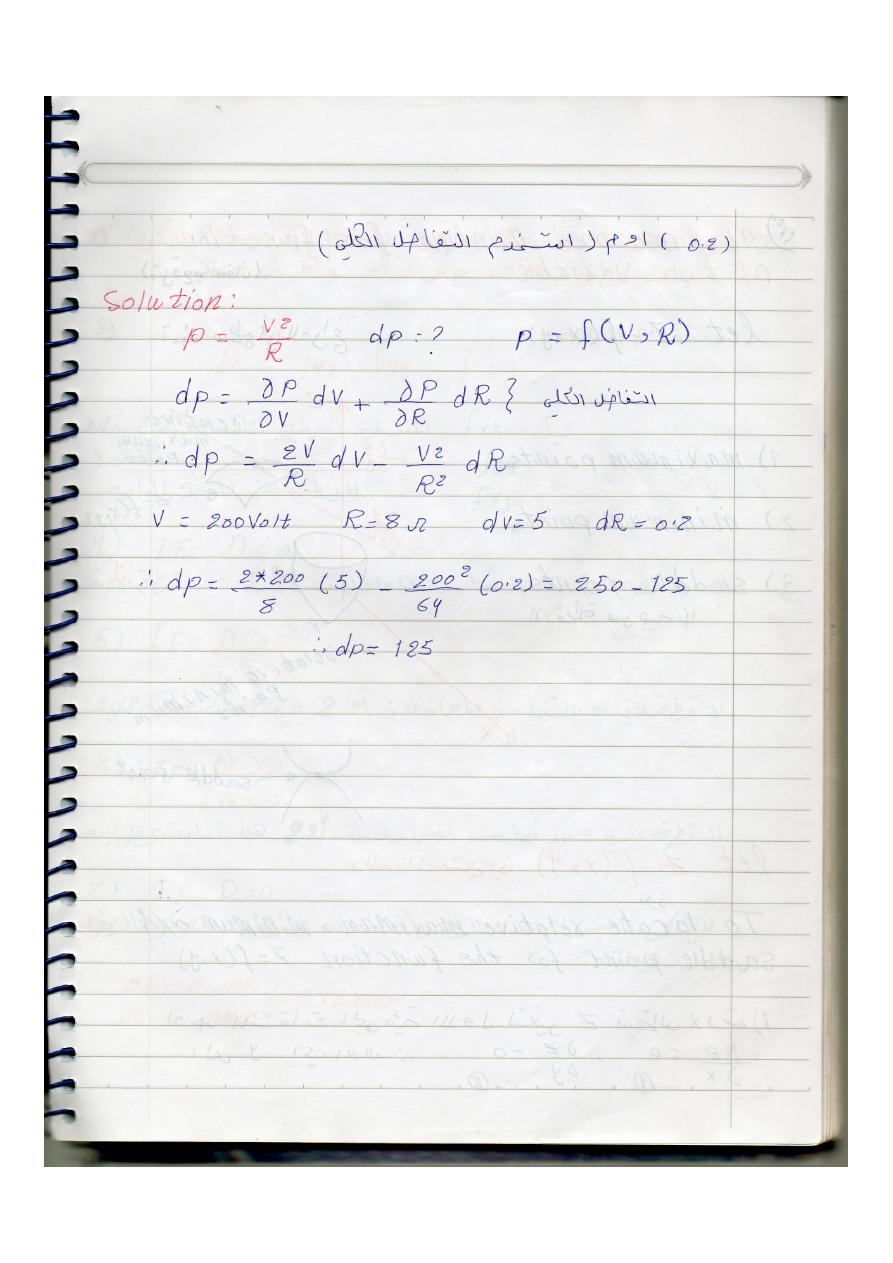 (0.2) اوم (استخدم التفاضل الكلي)
Solution:
p = V²/R dp = ? p = f(V, R)
dp = ∂P/∂V dV + ∂P/∂R dR } التفاضل الكلي
∴ dp = 2V/R dV - V²/R² dR
V = 200 Volt R = 8 Ω dV = 5 dR = 0.2
∴ dp = 2*200/8 (5) - 200²/64 (0.2) = 250 - 125
∴ dp = 125